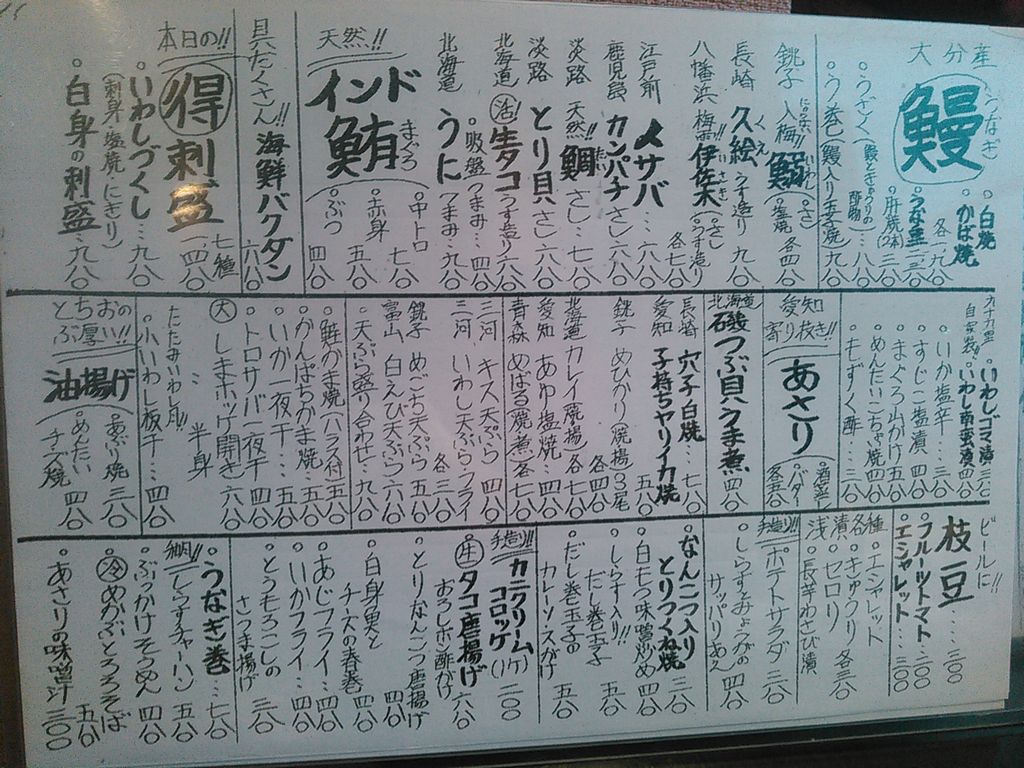 大分産
鰻 うなぎ
白焼
かば焼 各一、九八〇
うな重 二、二八〇
肝焼(2本) 三八〇
うざく(鰻ときゅうりの酢物) 八八〇
う巻(鰻入り玉子焼) 八八〇
銚子 入梅!! 鰯 いわし さし 塩焼 各四八〇
長崎 久絵 くえ うす造り 九八〇
八幡浜 梅雨!! 伊佐木 いさき さし うす造り 各七八〇
江戸前 〆サバ… 六八〇
鹿児島 カンパチ さし 六八〇
淡路 天然!! 鯛 さし 七八〇
淡路 とり貝 さし 六八〇
北海道 活! 生タコ うす造り 六八〇
吸盤つまみ… 四八〇
北海道 うに つまみ… 九八〇
天然!!
インド鮪 まぐろ
中トロ 七八〇
赤身 五八〇
ぶつ 四八〇
具だくさん!! 海鮮バクダン 六八〇
本日の!!
得刺盛 七種 一、四八〇
いわしづくし… 九八〇
(刺身・塩焼・にぎり)
白身の刺盛… 九八〇
九十九里 いわしゴマ漬 三八〇
自家製!! いわし南蛮漬 四八〇
いか塩辛… 三八〇
すじこ塩漬 四八〇
まぐろ山かけ 五八〇
めんたいこちゃ焼 四八〇
もずく酢… 三八〇
愛知 寄り抜き!!
あさり 酒蒸 バター 各五八〇
北海道 磯つぶ貝うま煮 四八〇
長崎 穴子白焼 七八〇
愛知 子持ちヤリイカ焼 六八〇
銚子 めひかり(焼・揚)3尾 四八〇
北海道 カレイ(焼・揚) 各七八〇
愛知 あゆ塩焼… 四八〇
青森 めばる(焼・煮) 各七八〇
三河 キス天ぷら 四八〇
三河 いわし天ぷら・フライ 各三八〇
銚子 めごち天ぷら 五八〇
富山 白えび天ぷら 六八〇
天ぷら盛り合わせ… 九八〇
鮭かま焼(ハラス付) 五八〇
かんぱちかま焼… 五八〇
いか一夜干… 五八〇
トロサバ一夜干 四八〇
大 しまホッケ開き 六八〇
〃 半身
たたみいわし風!!
小いわし板干… 四八〇
おのぶ厚い!!とち
油揚げ
あぶり焼 三八〇
めんたいチーズ焼 四八〇
ビールに!!
枝豆… 三〇〇
フルーツトマト 三〇〇
エシャレット… 三〇〇
各種浅漬
エシャレット
きゅうり
セロリ 各三八〇
長芋わさび漬
手造り!! ポテトサラダ… 三八〇
しらすとみょうがのサッパリあえ 四八〇
なんこつ入りとりつくね焼 三八〇
白もつ味噌炒め 四八〇
しらす入り!!だし巻玉子 五八〇
だし巻玉子のカレーソースがけ 五八〇
手造り!! カニクリームコロッケ(1ケ) 二〇〇
生 タコ唐揚げ おろしポン酢がけ 六八〇
とりなんこつ唐揚げ 四八〇
白身魚とチーズの春巻 四八〇
あじフライ… 四八〇
いかフライ… 四八〇
とうもろこしのさつま揚げ 三八〇
うなぎ巻… 七八〇
納得!!しらすチャーハン 五八〇
ぶっかけそうめん 四八〇
冷 めかぶとろろそば 五八〇
あさりの味噌汁 三〇〇